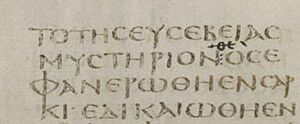 ΤΟΤΗϹΕΥϹΕΒΕΙΑϹ
ΘΕ
ΜΥϹΤΗΡΙΟΝΟϹΕ
ΦΑΝΕΡΩΘΗΕΝϹΑΡ
ΚΙ·ΕΔΙΚΑΙΩΘΗΕΝ